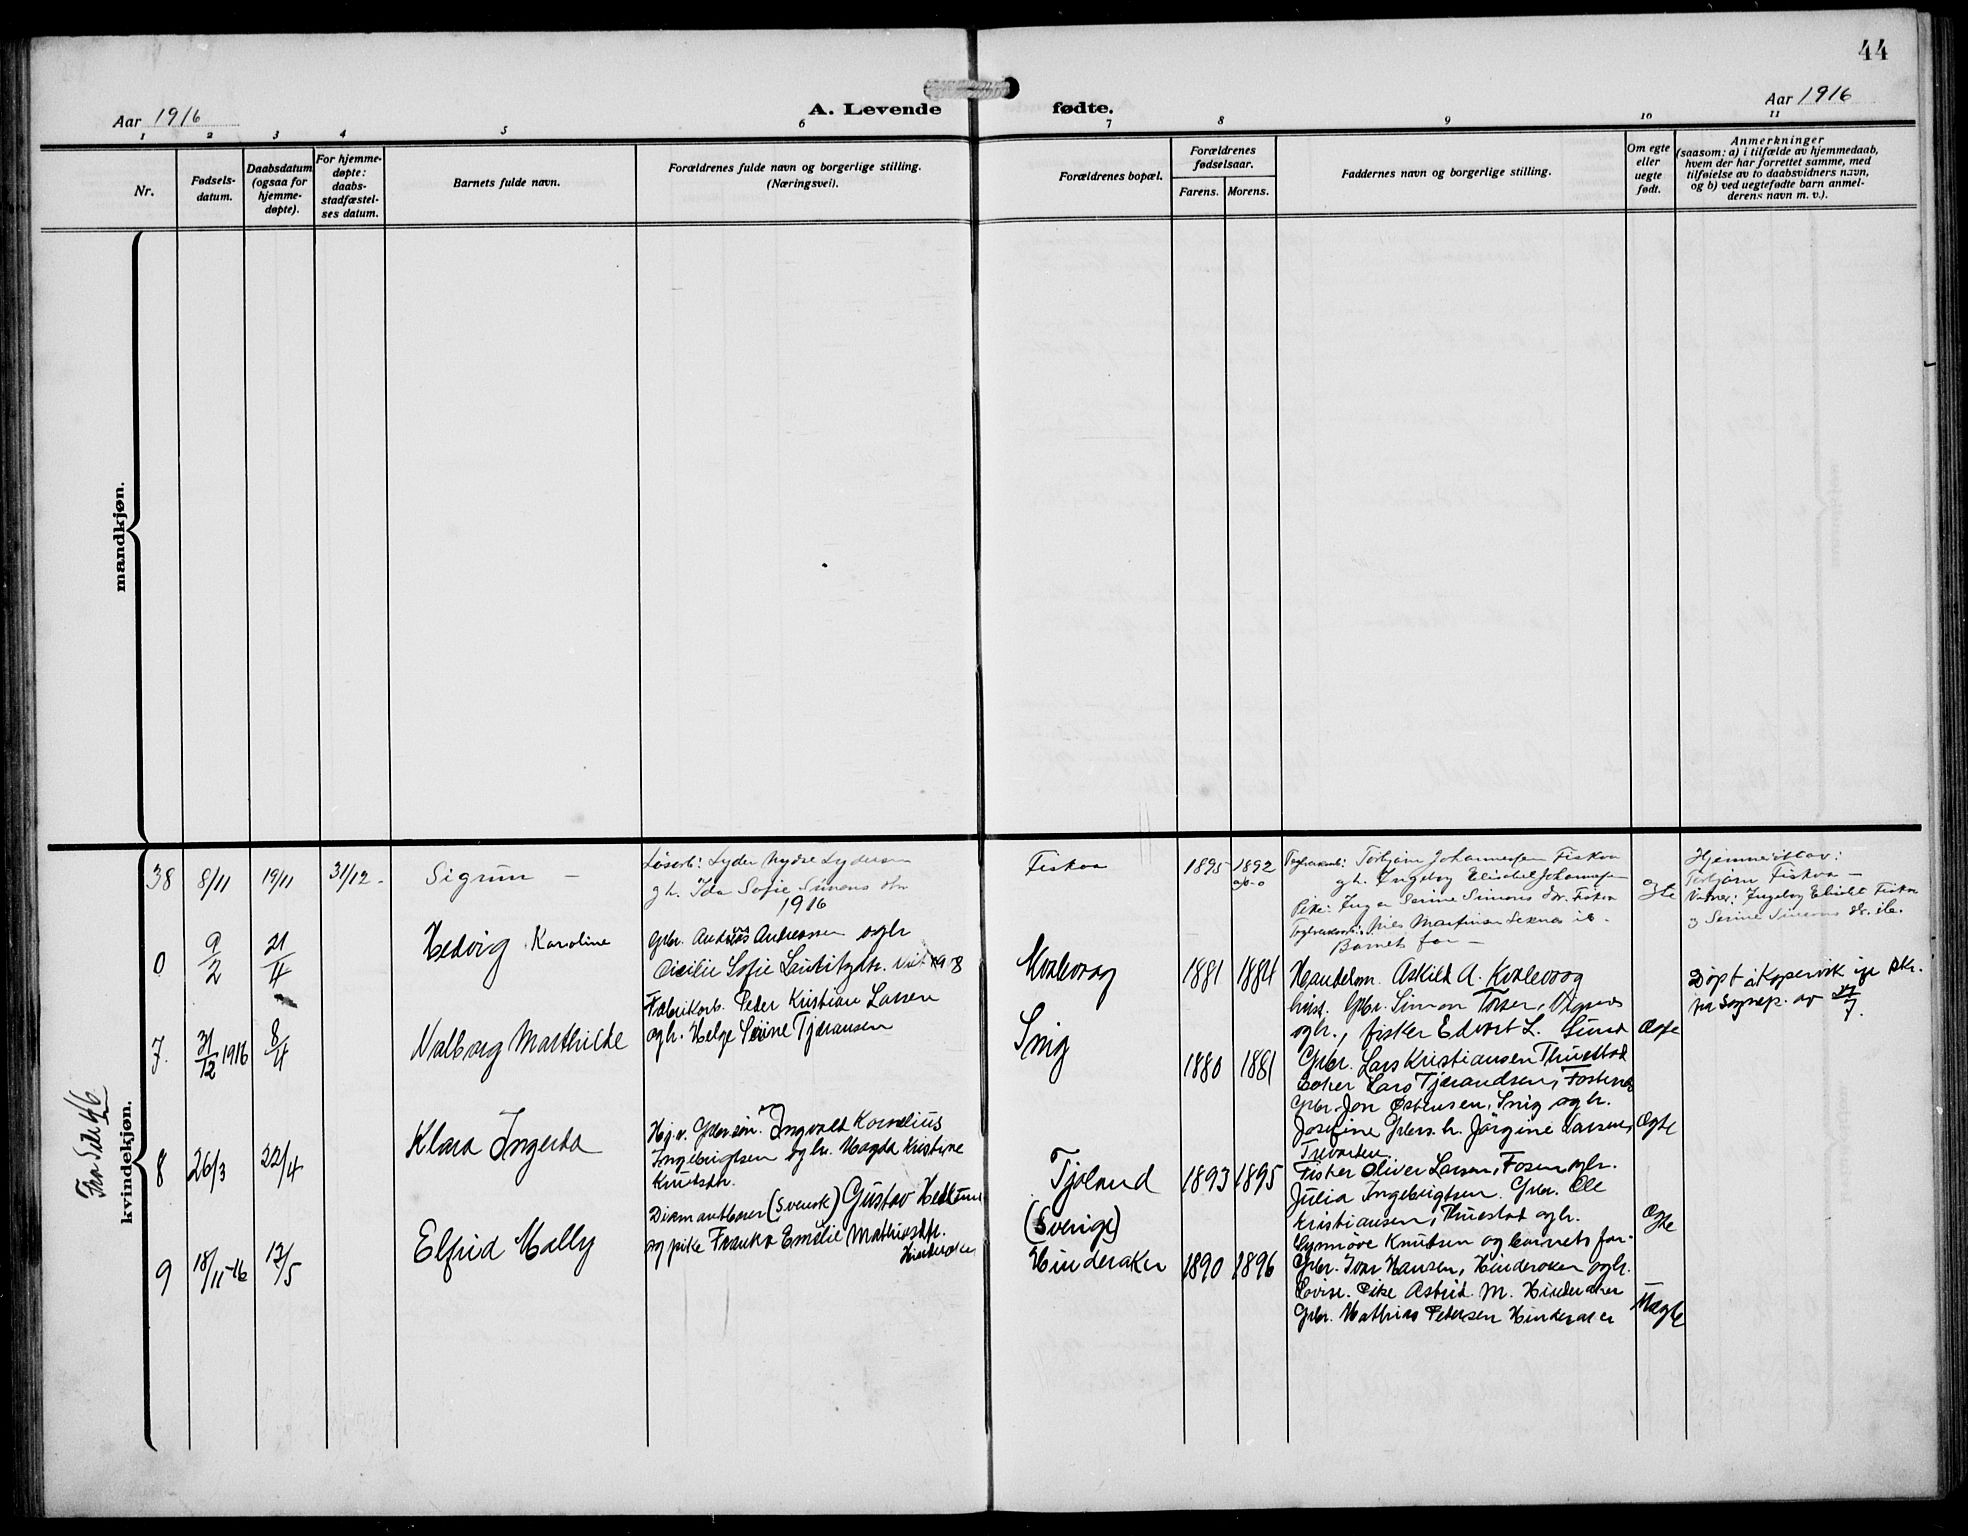 44
Aar 1916
A. Levende
fødte.
Aar 1916
1 2 3 4 5 6 7 8 9 10 11
Nr.
Fødsels-
datum.
Daabsdatum
(ogsaa for
hjemme-
døpte).
For hjemme-
døpte:
daabs-
stadfæstel-
ses datum.
Barnets fulde navn.
Forældrenes fulde navn og borgerlige stilling.
(Næringsvei).
Forældrenes bopæl.
Forældrenes
fødselsaar.
Farens. Morens.
Faddernes navn og borgerlige stilling.
Om egte
eller
uegte
født.
Anmerkninger
(saasom: a) i tilfælde av hjemmedaab,
hvem der har forrettet samme, med
tilføielse av to daabsvidners navn,
og b) ved uegtefødte barn anmel-
derens navn m. v.).
mandkjøn.
kvindekjøn.
Fra Side 46
38 8/11 19/11 31/12 -
Sigrun -
Løsarb: Lyder Lydersen
g h. Ida Sofie Simons dtr
1916
Fiskaa
1895 1892
Torbjørn Johannessen Fiskaa
g h. Ingeborg Elisabet Johannessen
Pike: Inger Serine Simons dr. Fiskaa
Nils Martinus Seknes ib -
Barnets far -
egte
Hjemmedøbt av:
Torbjørn Fiskaa -
Vidner: Ingeborg Elisabet Fiskaa
og Serine Simons dr. ib.
0 9/2 21/4
Hedvig Karoline
Gbr. Andreas Andreassen ogh
Cicilie Sofie Lauritzdtr.
Kvalevaag
1881 1884
Handelsm. Askild A. Kvalevaag
Gbr. Simon Vignes
ogh., fisker Edvart L. Sund
Egte
Døpt i Kopervik
Sognep. av
7. 31/12 1916 8/4
Valborg Marthilde
Fabrikarb. Peder Kristian Larsen
ogh. Helge Serine Tjerandsen
Snig
1880 1881
Gbr. Lars Kristiansen Thuestad
Lars Tjerandsen, Fosenes
Gbr. Jon Østensen, Snig ogh.
Josefine Gbrs. h. Jørgine Larsen,
Trevarden.
Egte
8 26/3 22/4
Klara Ingerda
Hj. v. Gbr. søn. Ingvald Kornelius
Ingebrigtsen ogh. Magda Kristine
Knutsdtr.
Tjøland
1893 1895
Fisker Oliver Larsen, Fosen ogh.
Julia Ingebrigtsen. Gbr. Ole
Kristiansen, Thuestad ogh.
Synnøve Knutsen og barnets far.
Egte
9 18/11-16 17/5
Elfrid Mally
Diamantborer (Svensk) Gustav Hedlund
og pike Franka Emelie Mathiasdtr.
Hinderaker
(Sverige)
Hinderaker
1890 1896
Gbr. Ivar Hansen, Hinderaker ogh.
Lovise. Pike Astrid M. Hinderaker
Gbr. Mathias Pedersen Hinderaker
Uegte